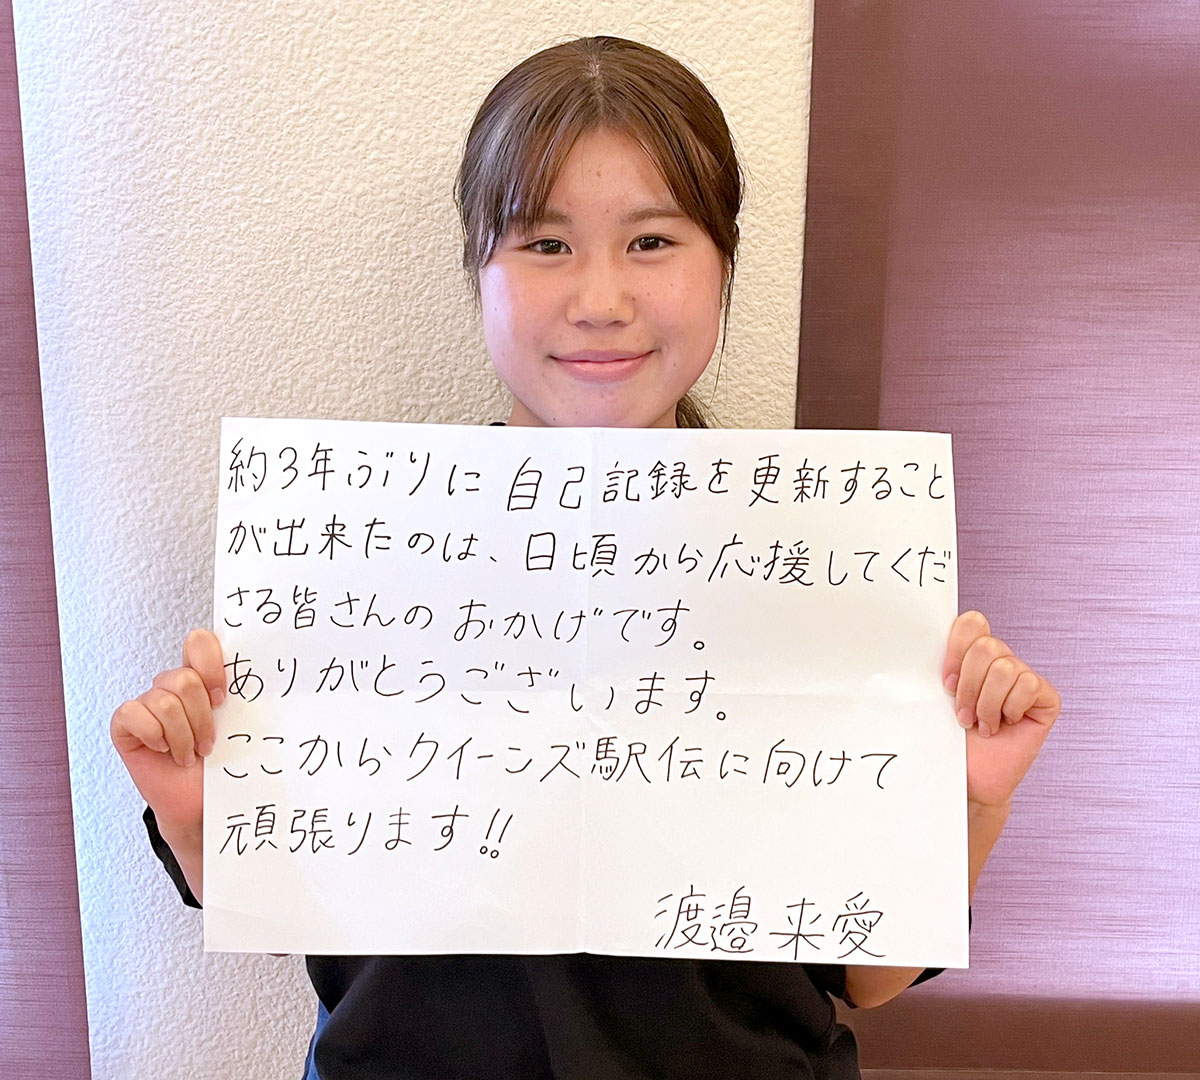 約3年ぶりに自己記録を更新すること
が出来たのは、日頃から応援してくだ
さる皆さんのおかげです。
ありがとうございます。
ここからクイーンズ駅伝に向けて
頑張ります!!
渡邉来愛